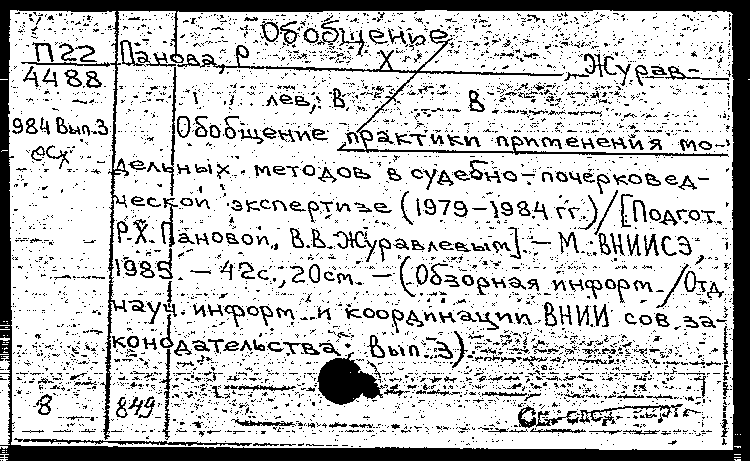 Обобщение
П22 Панова, Р Х , Журав-
4488
лев, В В
984 Вып.3 Обобщение практики применения мо-
дельных методов в судебно-почерковед-
ческой экспертизе (1979-1984 гг.)/[Подгот.
Р.Х. Пановой, В.В. Журавлевым]. - М. ВНИИСЭ,
1985. - 42с., 20см. - (Обзорная информ./Отд
науч. информ. и координации ВНИИ сов. за-
конодательства; Вып. 3)
8 849
См. след. карт.